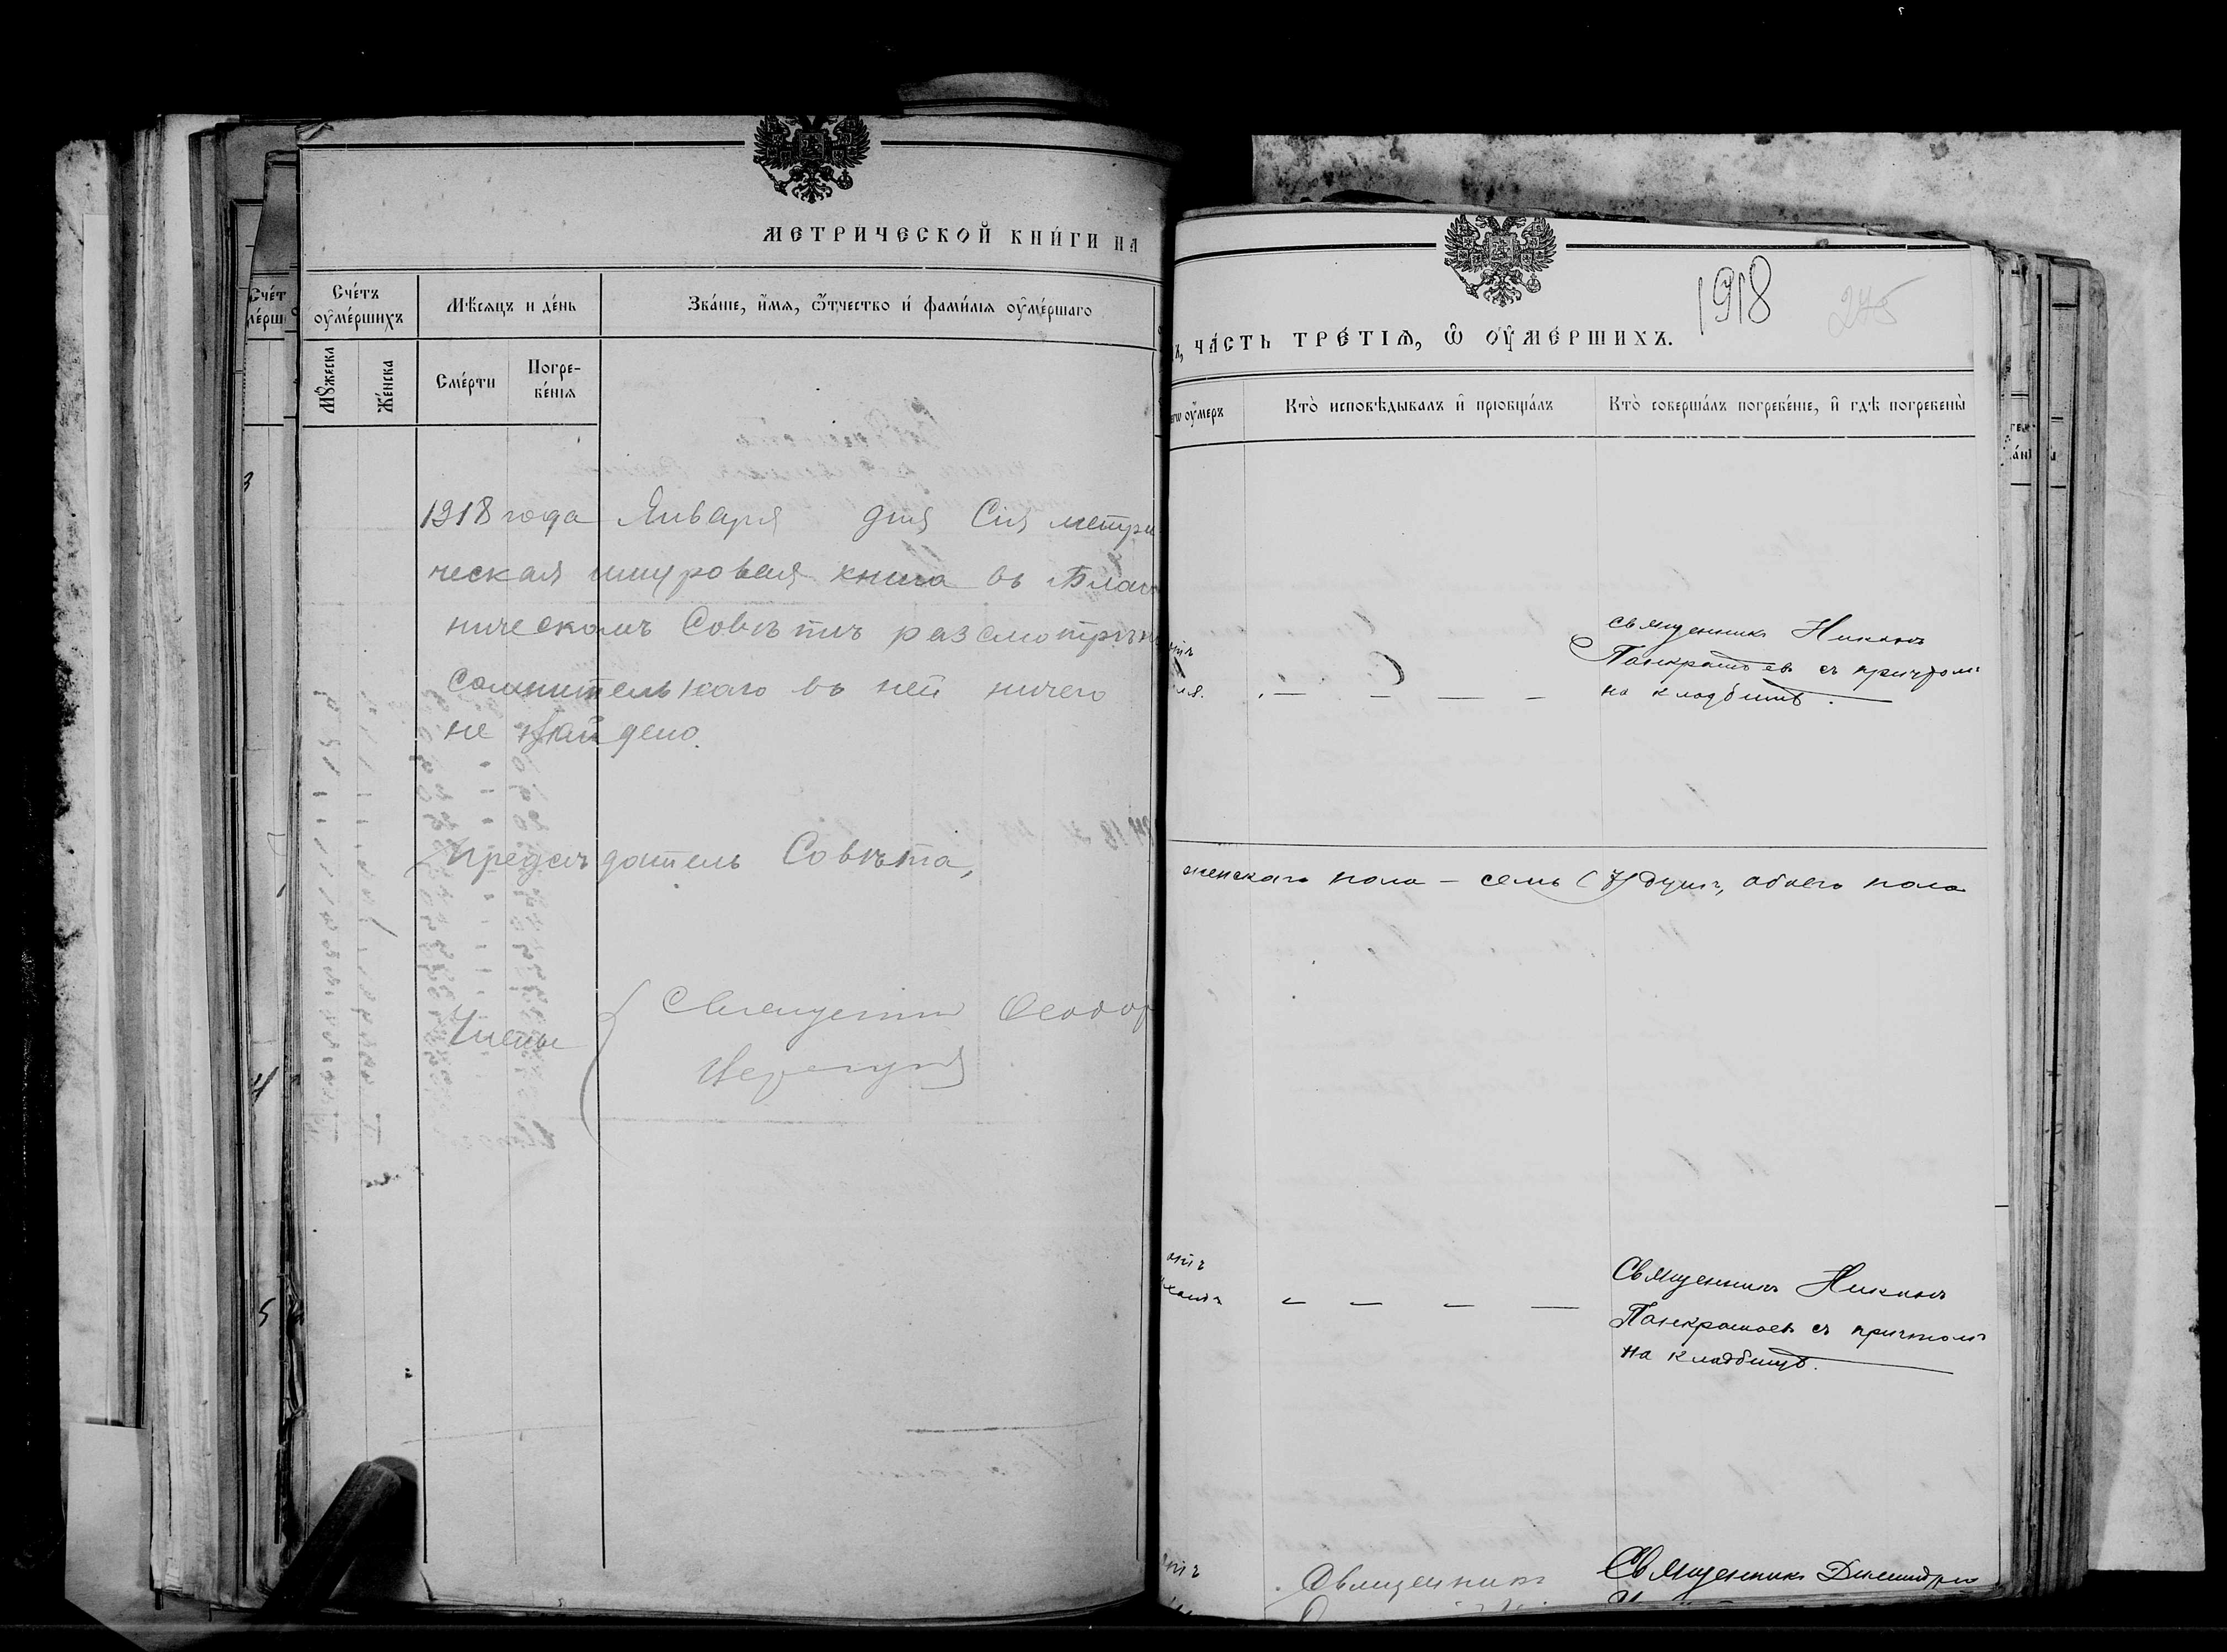 МЕТРИЧЕСКОЙ КНИ́ГИ НА
Сче́тъ оу҆ме́ршихъ
Мѣ́сяцъ и де́нь
Зва́нїе, и҆́мѧ, ѻ҆́тчество и҆ фами́лїѧ оу҆ме́ршаго
Мꙋ́жеска
Же́нска
Сме́рти
Погребе́нїѧ
1918 года Января дня Сія метри
ческая шнуровая книга въ Благо
ническомъ Совѣтѣ разсмотрѣн
сомнительнаго въ ней ничего
не найдено.
Предсѣдатель Совѣта,
Члены
Священник Феодор
1918
245
ЧА́СТЬ ТРЕ́ТЇѦ, Ѡ҆ ОУ҆МЕ́РШИХЪ.
оу҆́меръ
Кто̀ исповѣ́дывалъ и҆ прїобща́лъ
Кто̀ соверша́лъ погребе́нїе, и҆ гдѣ̀ погребены̀
Священникъ Никонъ
Панкратьевъ съ причтомъ
на кладбищѣ.
женскаго пола – семь (7) душъ, обоего пола
Священникъ Никонъ
Панкратьевъ съ причтомъ
на кладбищѣ.
Священникъ
Священникъ Димитрій